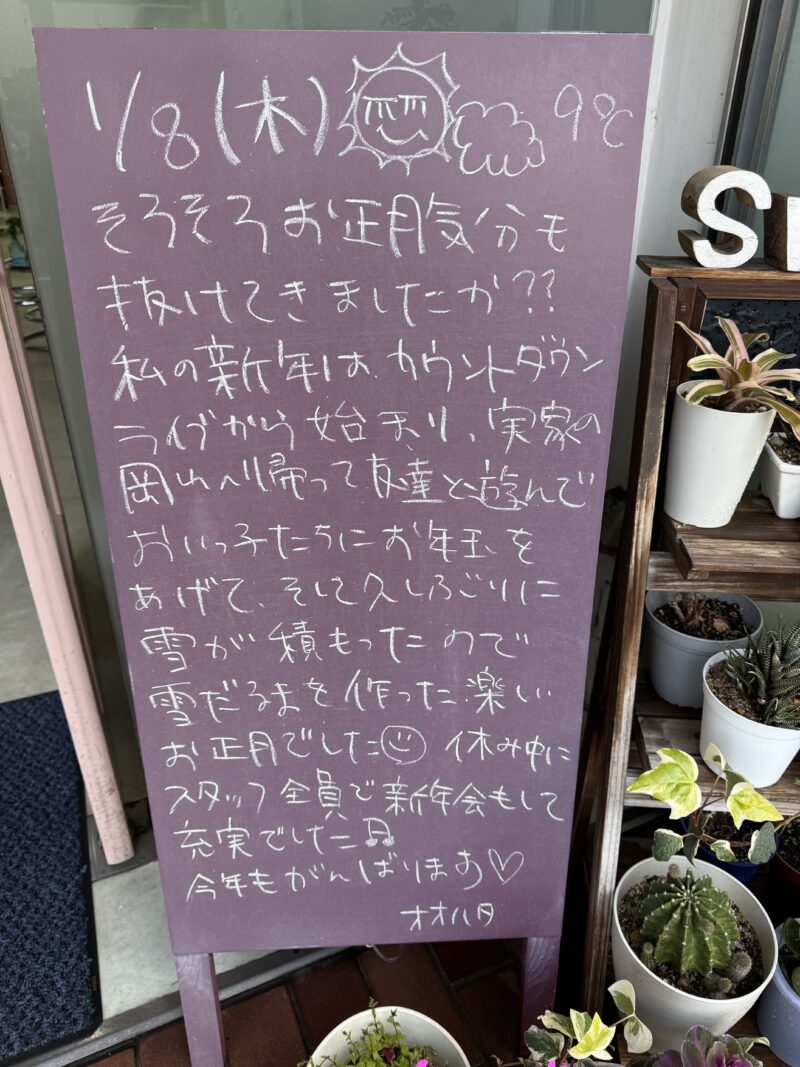 1/8(木) 9℃
そろそろお正月気分も
抜けてきましたか??
私の新年は、カウントダウン
ライブから始まり、実家の
岡山へ帰って友達と遊んで
おいっ子たちにお年玉を
あげて、そして久しぶりに
雪が積もったので
雪だるまを作った楽しい
お正月でした 休み中に
スタッフ全員で新年会もして
充実でした♫
今年もがんばります♡
オオハタ
S